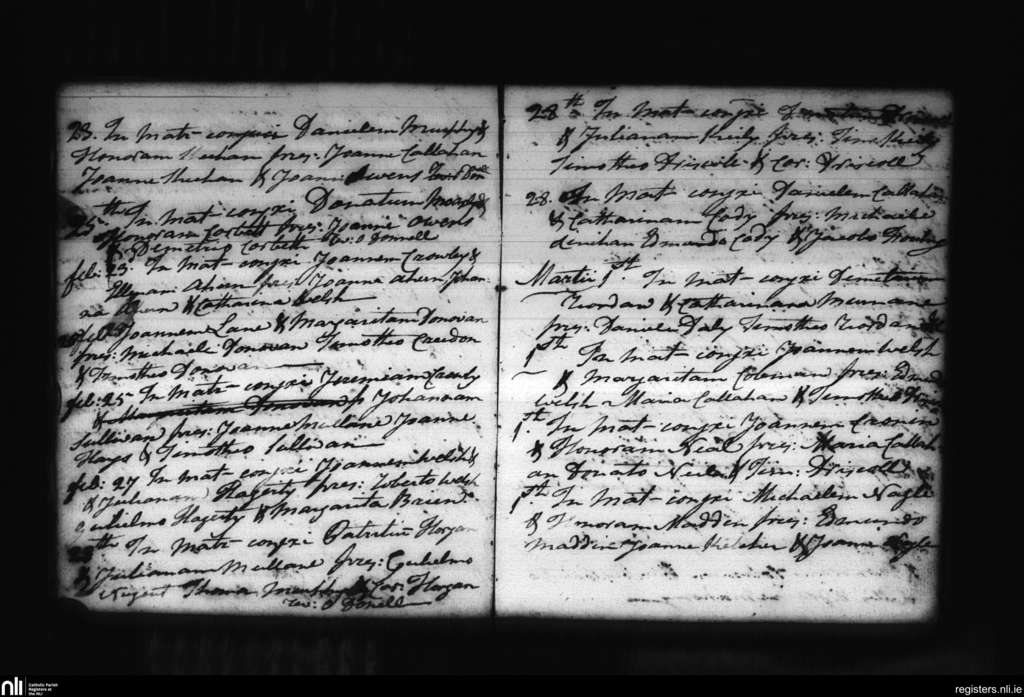 23. In mat conjuxi Danielem Murphy &
Honoram Meehan pres: Joanne Callahan
Joanne Meehan & Joanne Owens
25th In mat conjxi Donatum Murphy &
Honoram Corbett pres: Joanne Owens
& Demetrio Corbett Rev: O Donnell
feb: 25. In mat conjxi Joannem Crowley &
Ellenam Ahern pres: Joanna Ahern Johan
na Ahern & Catharina Welsh
feb: Joannem Lane & Margaritam Donovan
pres: Michaele Donovan Timotheo Creedon
& Timotheo Donovan
feb: 25 In mat conjxi Jeremiam Crowly
& Johanam
Sullivan pres: Joanne Mullane Joanne
Hays & Timotheo Sullivan
feb: 27 In mat conjxi Joannem Welsh &
& Julianam Hagerty pres: Roberto Welsh
Gulielmo Hagerty & Margarita Brien
28th In mat conjxi Patritiu Horgan
& Julianam Mullane pres: Gulielmo
Nugent Thoma Murphy & Cor: Horgan
Rev: O Donell
28th In mat conjxi
& Julianam Keily pres: Tim: Keily
Timotheo Driscile & Cor: Driscoll
28. In mat conjxi Danielem Callahan
& Catharinam Cody pres: Michaele
Linihan Edmundo Cody & Jacobo
Martii 1st In mat conjxi
Riordan & Catharinam Murnane
pres: Daniele Daly Timotheo Riordan &c
1th In mat conjxi Joannem Welsh
& Margaritam Coleman pres: Edmd
Welsh & Maria Callahan & Timotheo
1th In mat conjxi Joannem Cronin
& Honoram Neal pres: Maria Callah
an Donato Neile & Tim: Driscoll
1th In mat conjxi Michaelem Nagle
& Honoram Maddin pres: Edmundo
Maddin Joanne Kelcher & Joanne Nagle
nli
Catholic Parish
Registers at
the NLI
registers.nli.ie